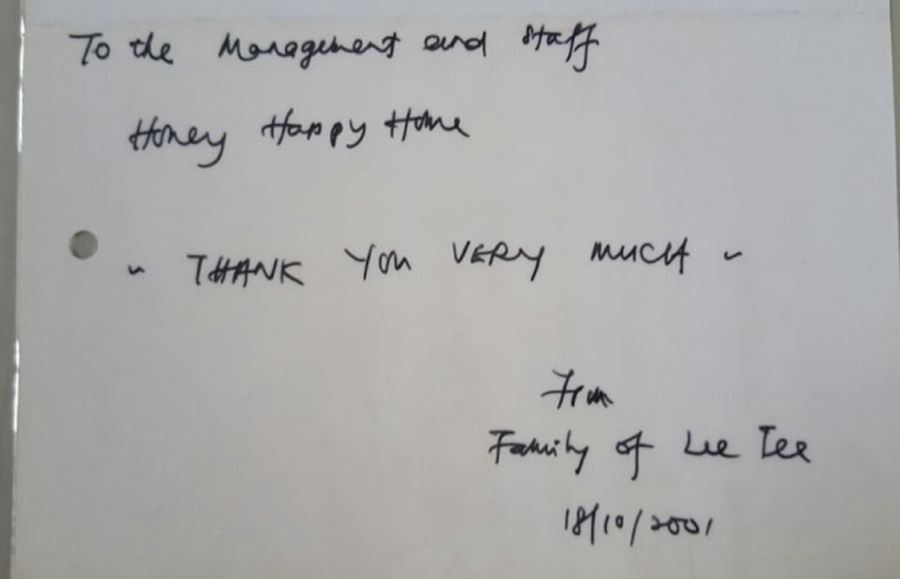 To the Management and Staff
Honey Happy Home
~ THANK YOU VERY MUCH ~
From
Family of Lee Tee
18/10/2001